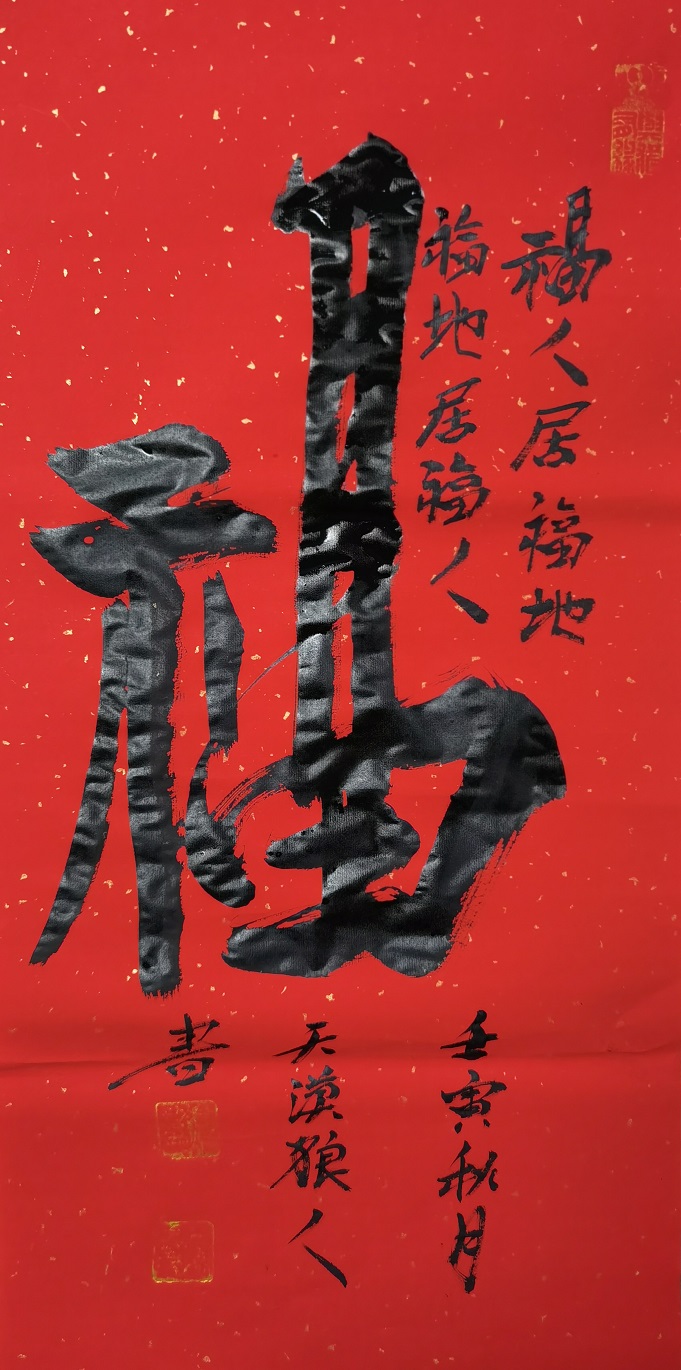 福
福人居福地
福地居福人
壬寅秋月
天漠狼人
書